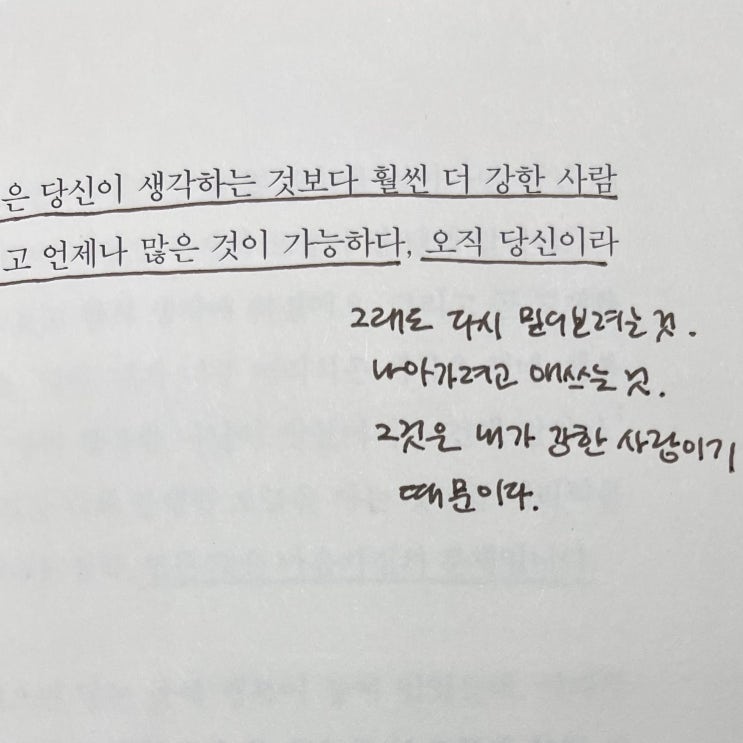 은 당신이 생각하는 것보다 훨씬 더 강한 사람
고 언제나 많은 것이 가능하다, 오직 당신이라
그래도 다시 믿어보려는 것.
나아가려고 애쓰는 것.
그것은 내가 강한 사람이기
때문이다.